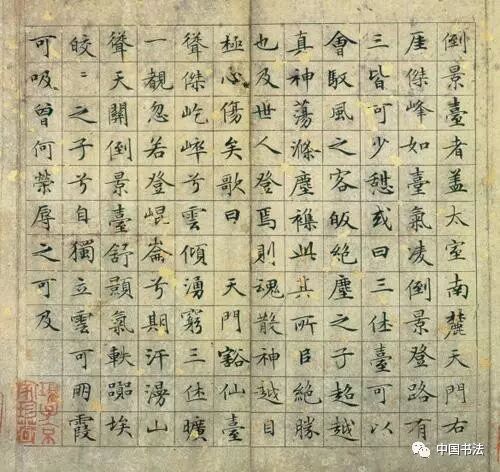 倒景臺者盖太室南麓天門右
崖傑峰如臺氣凌倒景登路有
三皆可少憇或曰三休臺可以
會馭風之客皈絶塵之子超越
真神蕩滌塵襟此其所㠯絶勝
也及世人登焉則魂散神越目
極心傷矣歌曰 天門豁仙臺
聳傑屹崪兮雲傾湧窮三休曠
一覩忽若登崐崙兮期汗漫山
聳天關倒景臺舒顥氣軼囂埃
皎〻之子兮自獨立雲可朋霞
可吸曾何榮辱之可及
項子京
家珍藏
中国书法